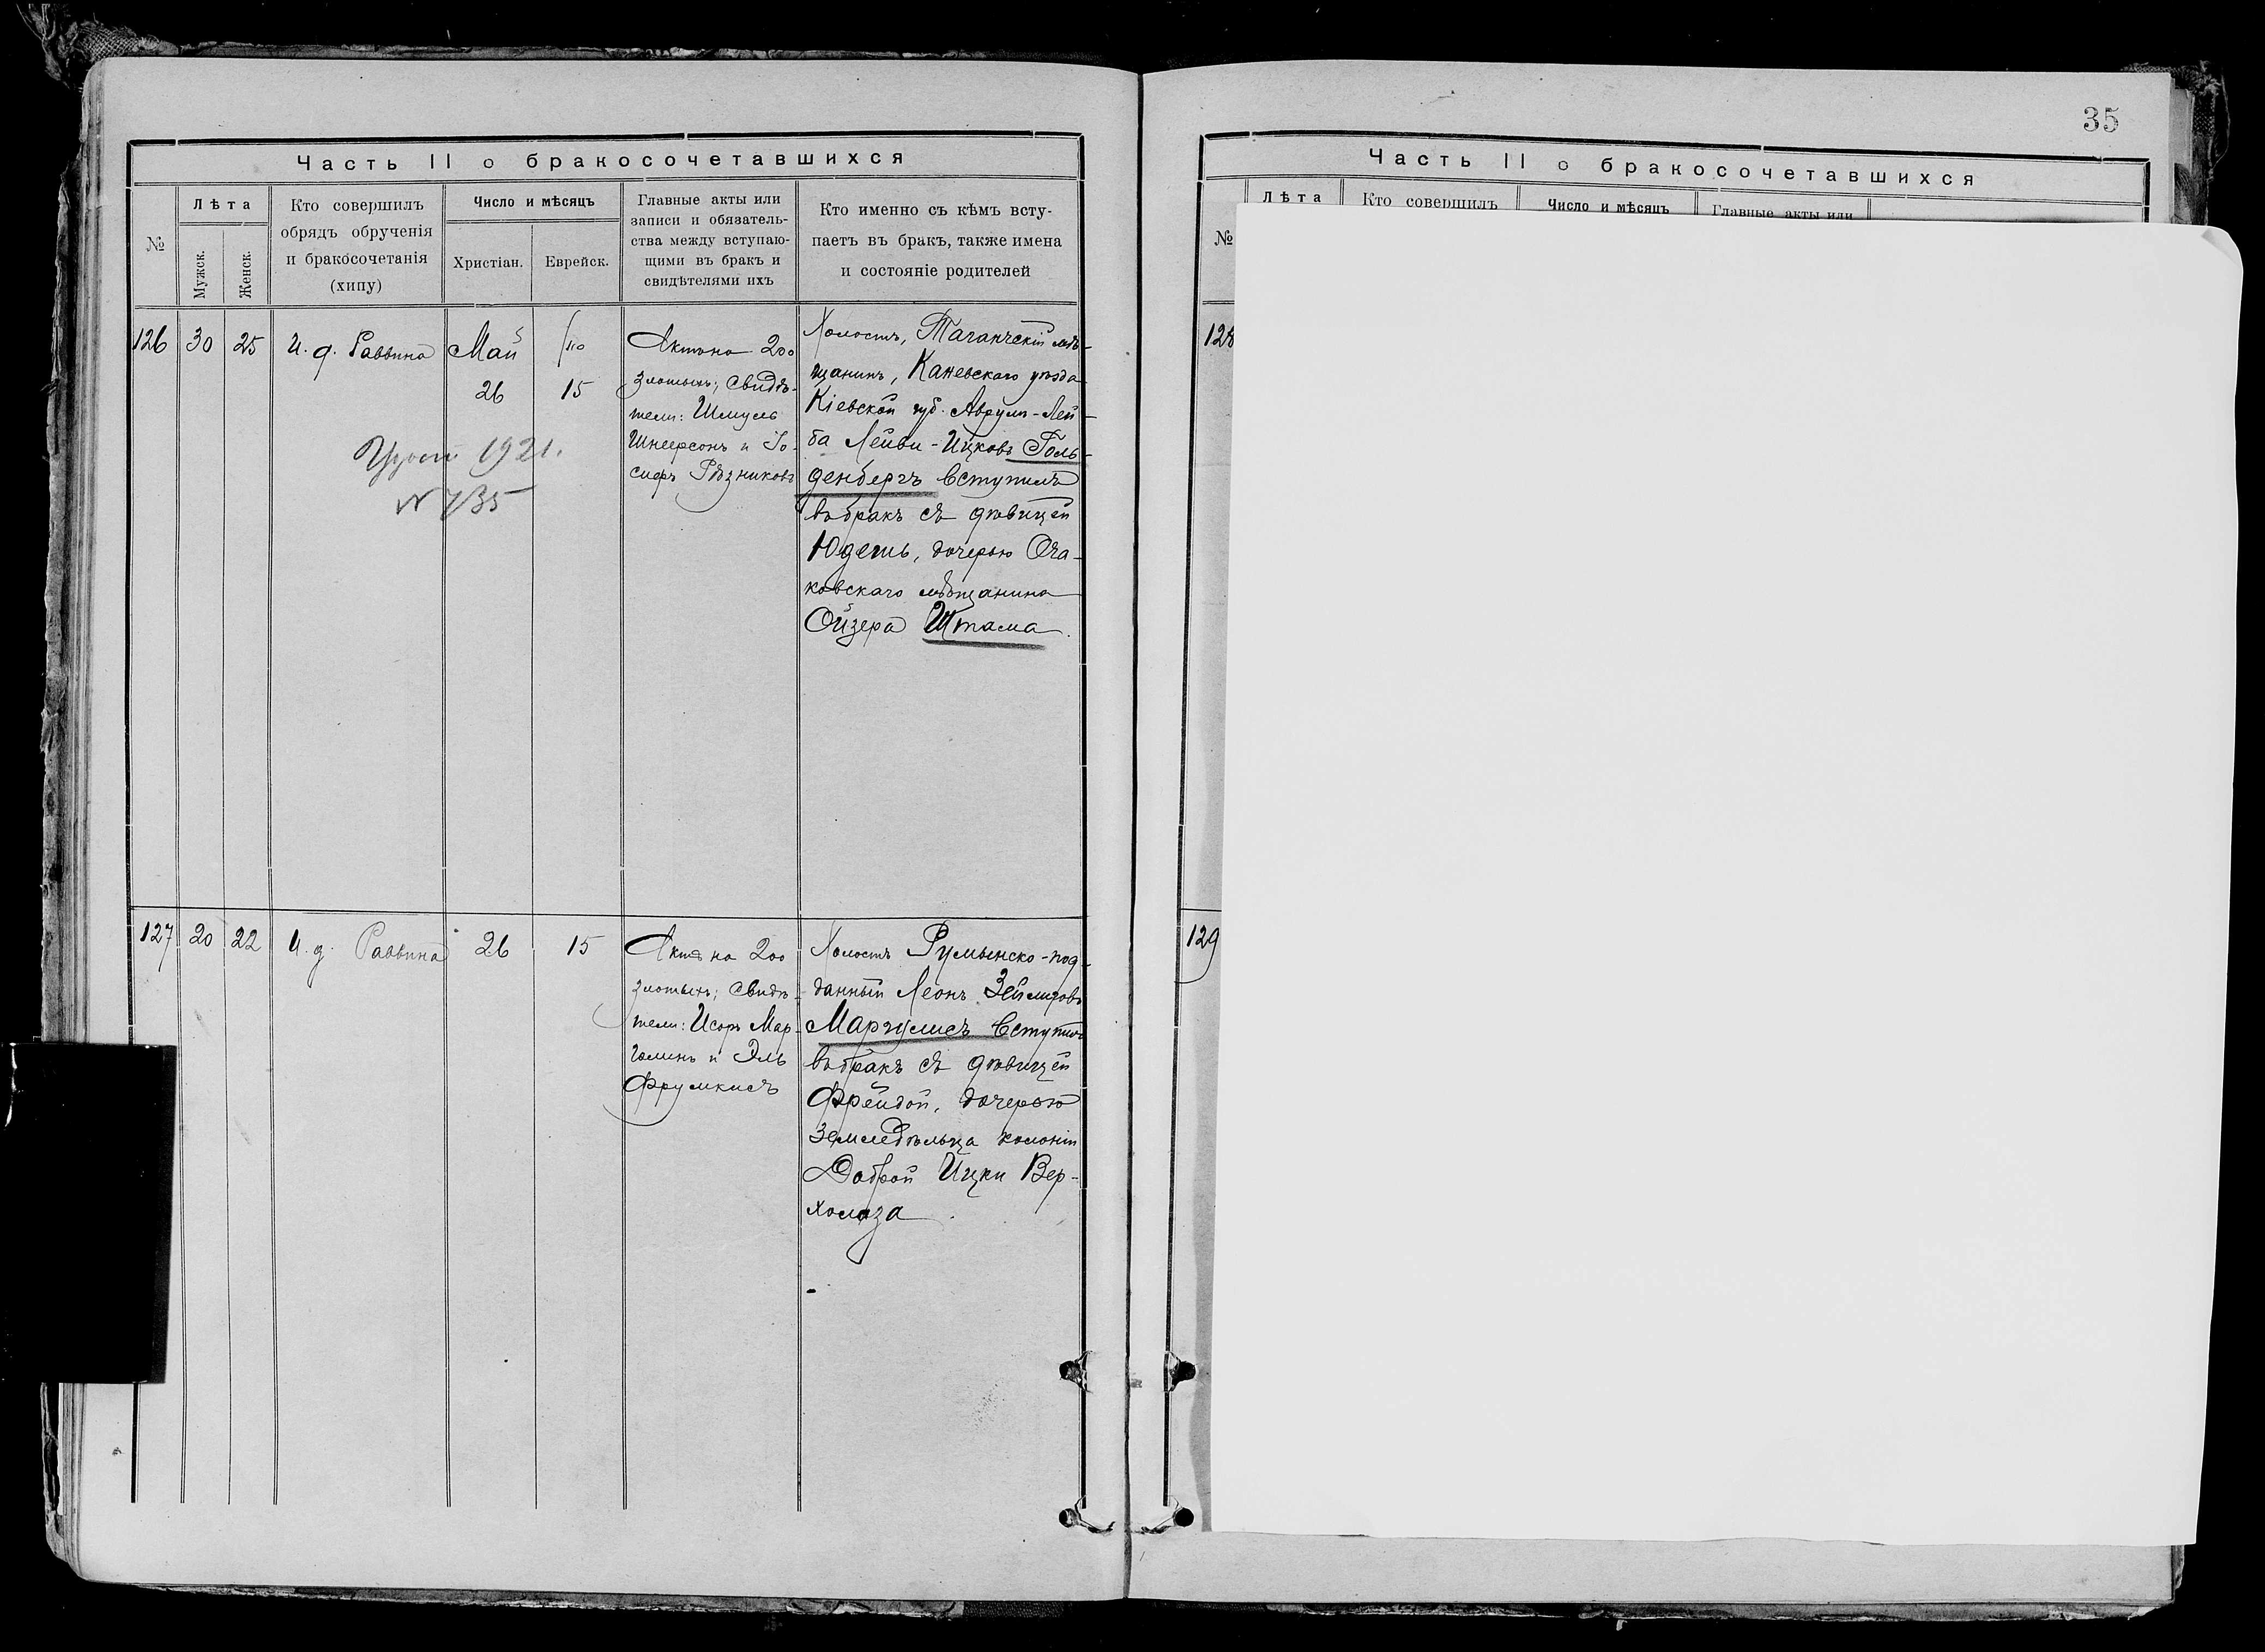 Часть II о бракосочетавшихся
№
Лѣта
Мужск.
Женск.
Кто совершилъ
обрядъ обрученія
и бракосочетанія
(хипу)
Число и мѣсяцъ
Христіан.
Еврейск.
Главные акты или
записи и обязатель-
ства между вступаю-
щими въ бракъ и
свидѣтелями ихъ
Кто именно съ кѣмъ всту-
паетъ въ бракъ, также имена
и состояніе родителей
126
30
25
И. д. Раввина
Май
26
15
Актъ на 200
злотыхъ; свидѣ-
тели: Шмуль
Шнеерсонъ и Іо-
сифъ Рѣзниковъ
Холостъ, Таганчскій мѣ-
щанинъ, Каневскаго уѣзда
Кіевской губ. Аврумъ-Лей-
ба Лейви-Ицковъ Голь-
денбергъ вступилъ
въ бракъ съ дѣвицей
Юдешь, дочерью Оча-
ковскаго мѣщанина
Ойзера Штама.
1921.
N 735
127
20
22
И. д. Раввина
26
15
Актъ на 200
злотыхъ; свидѣ-
тели: Исоръ Мар-
голинъ и Эль
Фрумкисъ
Холостъ Румынско-под-
данный Леонъ Зейлиговъ
Маргулисъ вступилъ
въ бракъ съ дѣвицей
Фрейдой, дочерью
земледѣльца колоніи
Доброй Ицки Вер-
холаза
35
Часть II о бракосочетавшихся
№
Лѣта
Кто совершилъ
Число и мѣсяцъ
Главные акты или
128
129